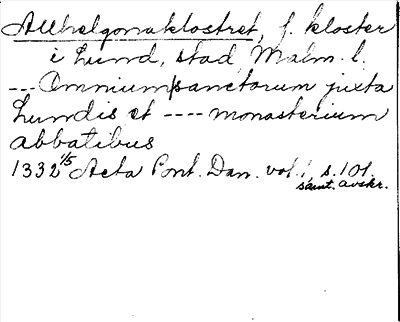 Allhelgonaklostret, f. kloster
i Lund, stad, Malm. l.
--- Omnium sanctorum juxta
Lundis et ---- monasterium
abbatibus
1332 1/5 Acta Pont. Dan. vol. 1, s. 101.
samt. avskr.